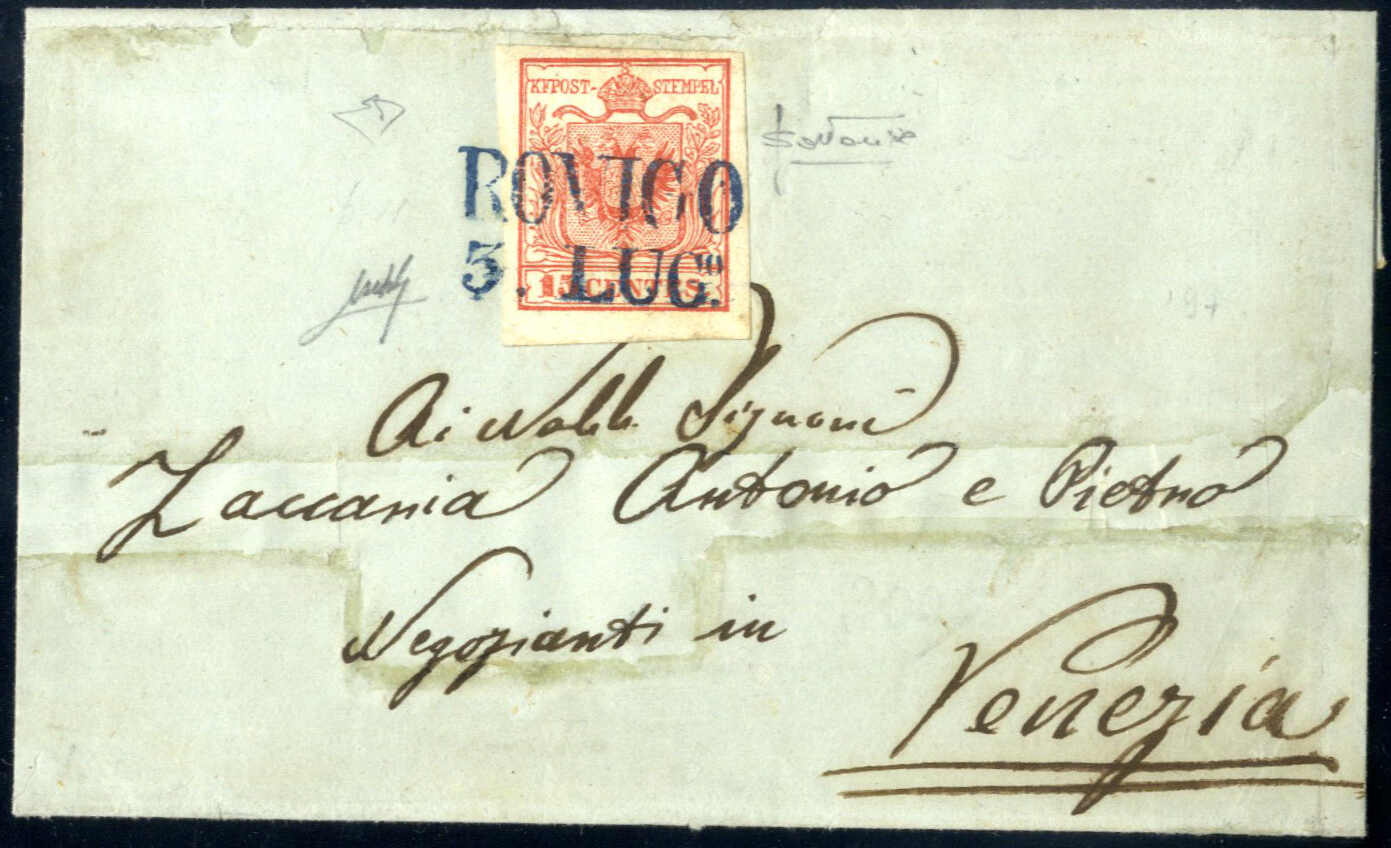 KKPOST-STEMPEL
ROVIGO
3. LUG.ᴵᴼ
15 CENTES
Ai Nobb. Signori
Zaccaria Antonio e Pietro
Negozianti in
Venezia